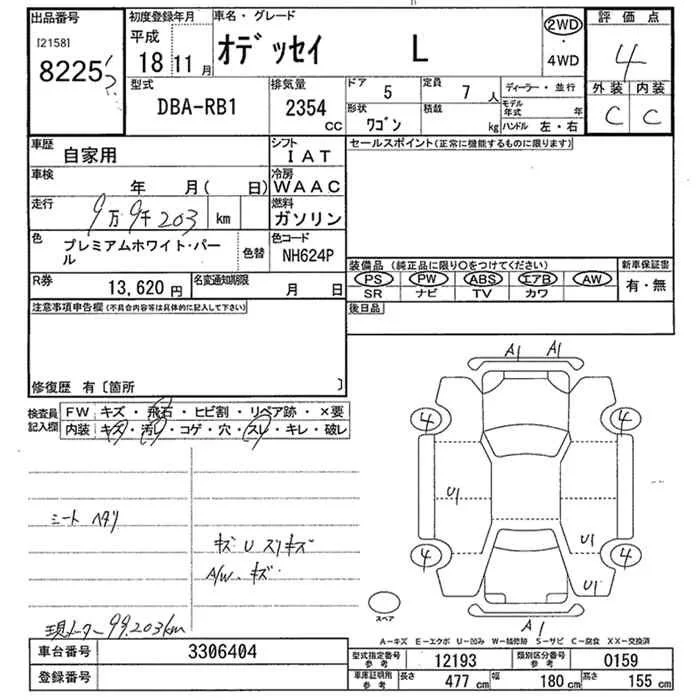 出品番号 初度登録年月 車名・グレード 評価点
[2158] 平成 オデッセイ L 2WD
8225 18 11月 ・4WD 4
型式 排気量 ドア 5 定員 7 人 ディーラー・並行 外装 内装
DBA-RB1 2354 cc 形状 ワゴン 積載 kg モデル年式 年 C C
ハンドル 左・右
車歴 自家用 シフト IAT セールスポイント(正常に機能するものに限ります)
車検 年 月( 日) 冷房 WAAC
走行 9万9千203 km 燃料 ガソリン
色 プレミアムホワイト・パール 色替 色コード NH624P
装備品(純正品に限り○をつけてください) 新車保証書
R券 13,620円 名変通知期限 月 日 PS PW ABS エアB AW 有・無
SR ナビ TV カワ
注意事項申告欄(不具合内容等は具体的に記入して下さい) 後日品
修復歴 有〔箇所 〕
検査員記入欄 FW キズ・飛石・ヒビ割・リペア跡・×要
内装 キズ・汚レ・コゲ・穴・スレ・キレ・破レ
A1 A1
4 4
U1
シート ヘタリ
キズ U スリキズ U1
A/W、キズ 4 4
U1
スペア
現メーター 99,203km A1
A-キズ E-エクボ U-凹み W-補修跡 S-サビ C-腐食 XX-交換済
車台番号 3306404 型式指定番号 参考 12193 類別区分番号 参考 0159
登録番号 車庫証明用 参考 長さ 477 cm 幅 180 cm 高さ 155 cm